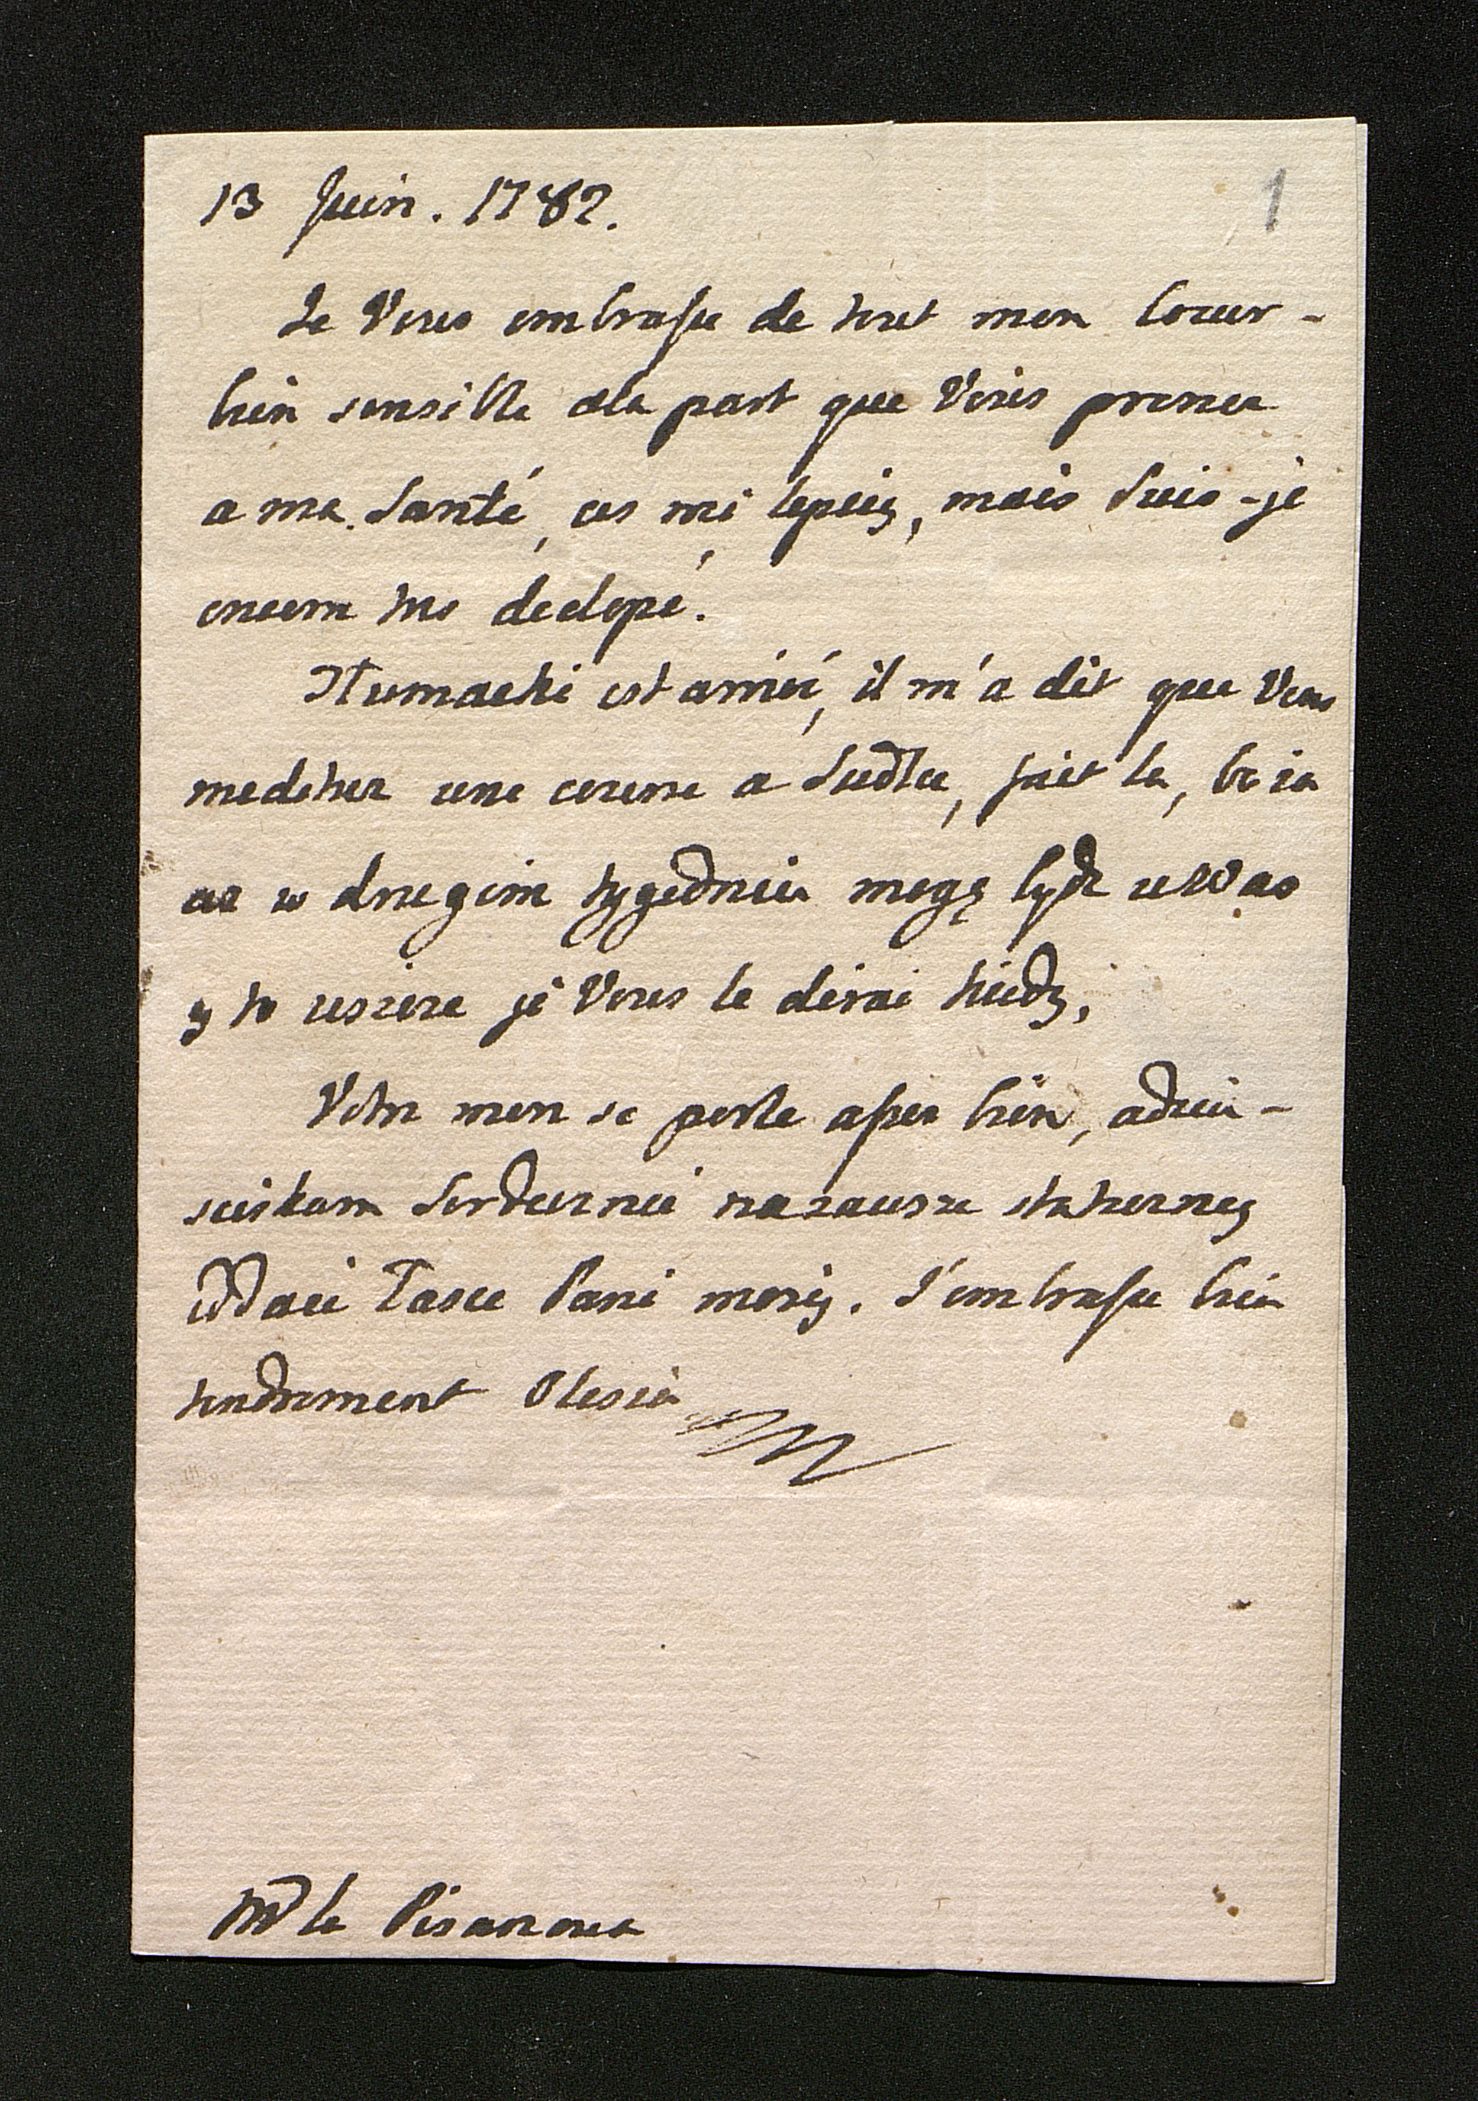 13 Juin. 1782.
1
Je Vous embrasse de tout mon Coeur -
bien sensible dela part que Vous prenez
a ma Santé, cos mi lepiey, mais Suis-je
encore tres eclopé.
est arrivé, il m'a dit que Vous
une course a Siedlce, fait la, bo ia
az w drugim tygodniu mogę bydz u Was
y to ieszcze je Vous le dirai kiedy,
Votre mon se porte assez bien, adieu -
sciskam Serdecznie nazawsze stateczney
oddaię Łasce Pani moiey. J'embrasse bien
tendrement Olesia
Mde la Pisarzowa